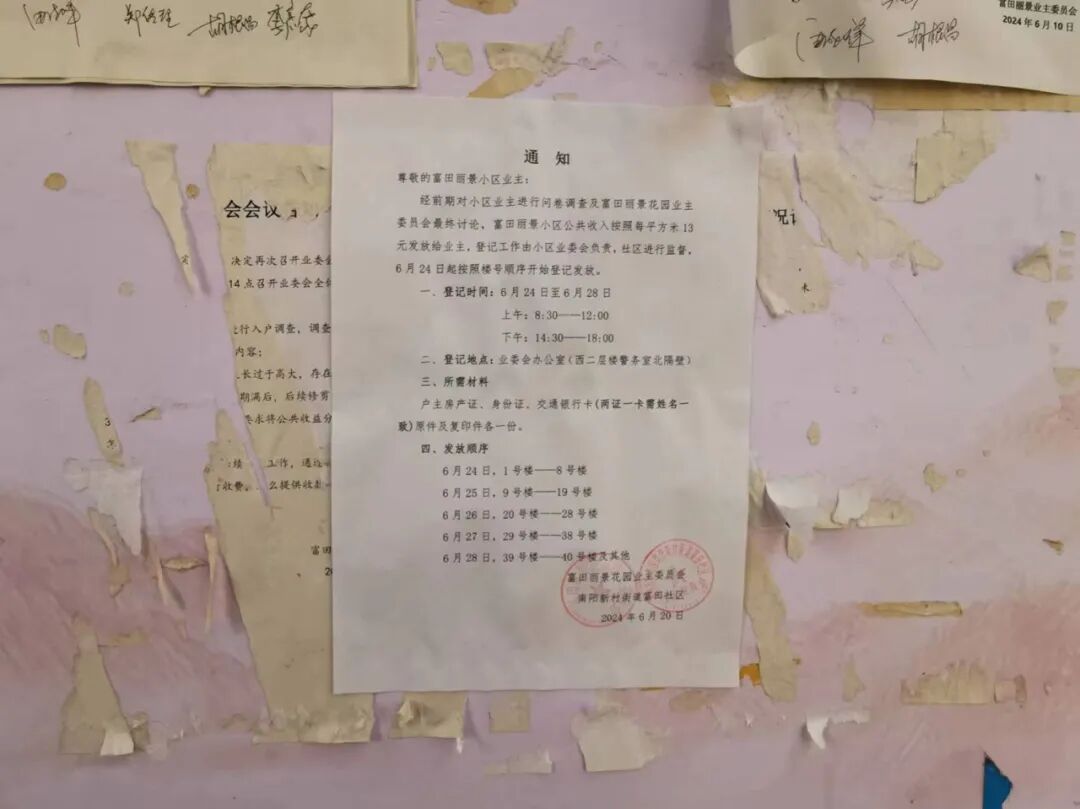 胡根昌
富田丽景业主委员会
2024年6月10日
胡根昌
通 知
尊敬的富田丽景小区业主：
经前期对小区业主进行问卷调查及富田丽景花园业主
委员会最终讨论，富田丽景小区公共收入按照每平方米13
元发放给业主，登记工作由小区业委会负责，社区进行监督，
6月24日起按照楼号顺序开始登记发放。
一、登记时间：6月24日至6月28日
上午：8:30——12:00
下午：14:30——18:00
二、登记地点：业委会办公室（西二层楼警务室北隔壁）
三、所需材料
户主房产证、身份证、交通银行卡(两证一卡需姓名一
致)原件及复印件各一份。
四、发放顺序
6月24日，1号楼——8号楼
6月25日，9号楼——19号楼
6月26日，20号楼——28号楼
6月27日，29号楼——38号楼
6月28日，39号楼——40号楼及其他
富田丽景花园业主委员会
南阳新村街道富田社区
2024年6月20日
会会议
决定再次召开业委会
14点召开业委会全体
行入户调查，调查
内容：
长过于高大，存在
期满后，后续修剪
要求将公共收益分
续 工作，通过
收费。 么提供收款
富田
20
况